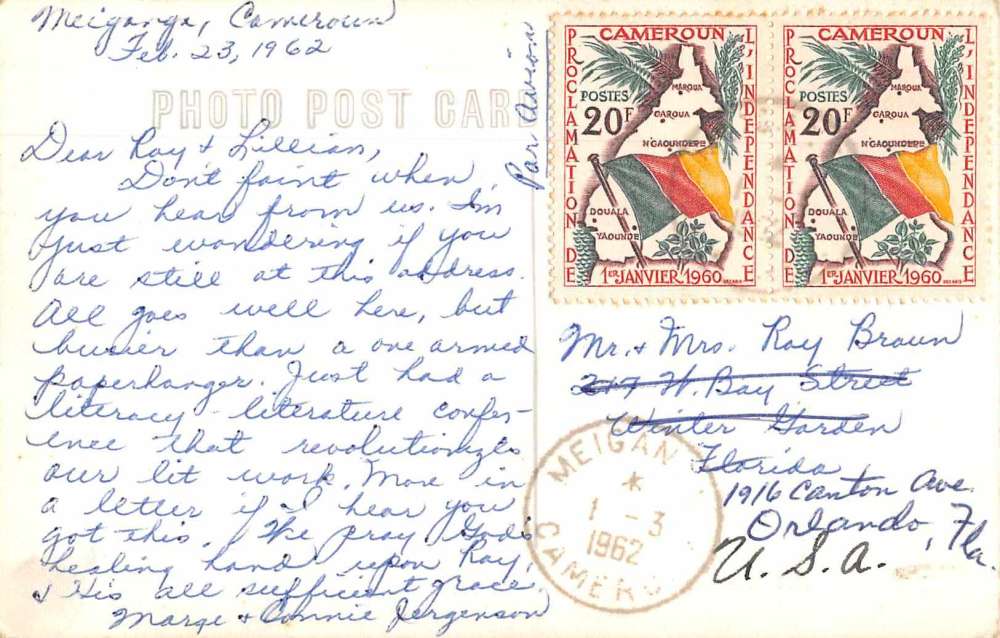 Meiganga, Cameroun
Feb. 23, 1962
PHOTO POST CARD
Par Avion
Dear Ray & Lillian,
Don't faint when
you hear from us. I'm
just wondering if you
are still at this address.
All goes well here, but
busier than a one armed
paperhanger. Just had a
literacy-literature confer-
ence that revolutionizes
our lit work. More in
a letter if I hear you
got this. We pray God's
healing hand upon Ray,
& His all sufficient grace.
Marge & Connie Jergenson
CAMEROUN
PROCLAMATION DE
L'INDEPENDANCE
POSTES
20F
MAROUA
GAROUA
N'GAOUNDERE
DOUALA
YAOUNDE
1ER JANVIER 1960
CAMEROUN
PROCLAMATION DE
L'INDEPENDANCE
POSTES
20F
MAROUA
GAROUA
N'GAOUNDERE
DOUALA
YAOUNDE
1ER JANVIER 1960
Mr. & Mrs. Ray Braun
217 W. Bay Street
Winter Garden
Florida
1916 Canton Ave.
Orlando, Fla.
U.S.A.
MEIGAN
1-3
1962
CAMERO